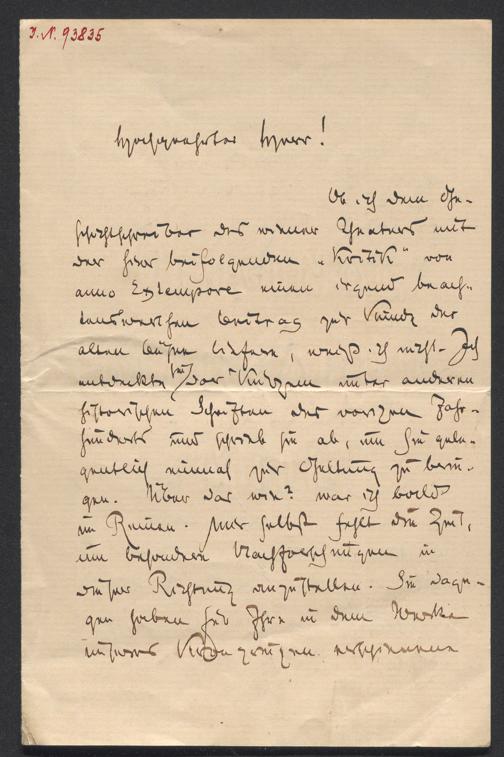 J. N. 93835
Hochgeehrter Herr!
Ob ich dem Ge-
schichtschreiber des wiener Theaters mit
der hier beifolgenden „Kritik" von
anno Extempore einen irgend beach-
tenswerthen Beitrag zur Kunde der
alten Bühne liefere, weiß ich nicht. Ich
entdeckte sie vor Kurzem unter anderen
historischen Schriften des vorigen Jahr-
hunderts und schrieb sie ab, um sie gele-
gentlich einmal zur Geltung zu brin-
gen. Über das wie? war ich bald
im Reinen. Mir selbst fehlt die Zeit,
um besondere Nachforschungen in
dieser Richtung anzustellen. Sie dage-
gen haben für Ihre in dem Werke
unseres erschienene